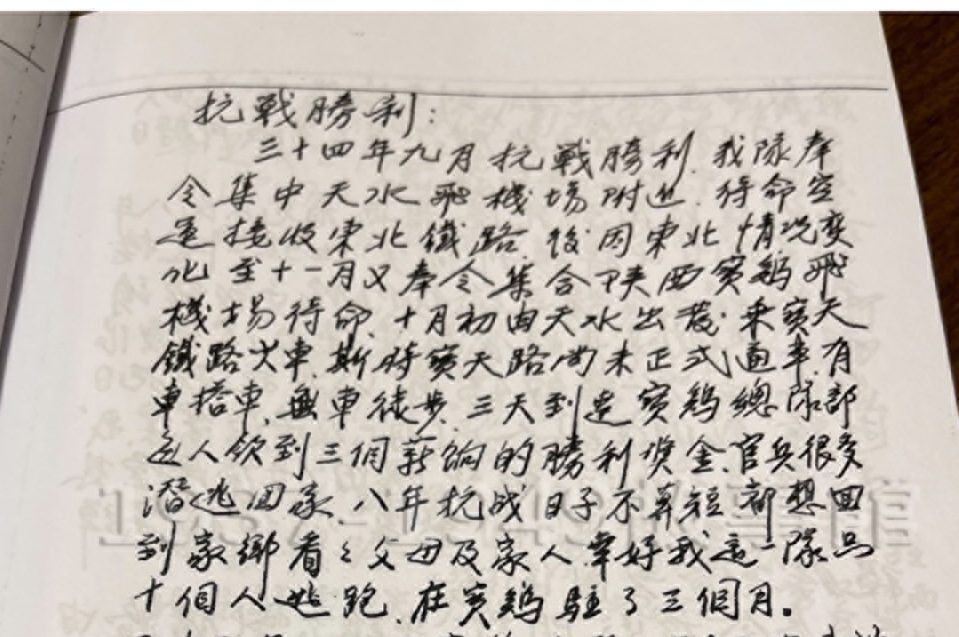 抗戰勝利：
三十四年九月抗戰勝利．我隊奉
令集中天水飛機場附近．待命空
運接收東北鐵路．後因東北情況变
化至十一月又奉令集合陕西寶鷄飛
機場待命．十月初由天水出發．乘寶天
鐵路火車．斯時寶天路尚未正式通車．有
車搭車．無車徒步．三天到達寶鷄總隊部
每人領到三個薪饷的勝利奖金．官兵很多
潛逃回家．八年抗战日子不算短．都想回
到家鄉看々父母及家人．幸好我這一隊只
十個人逃跑．在寶鷄駐了三個月。